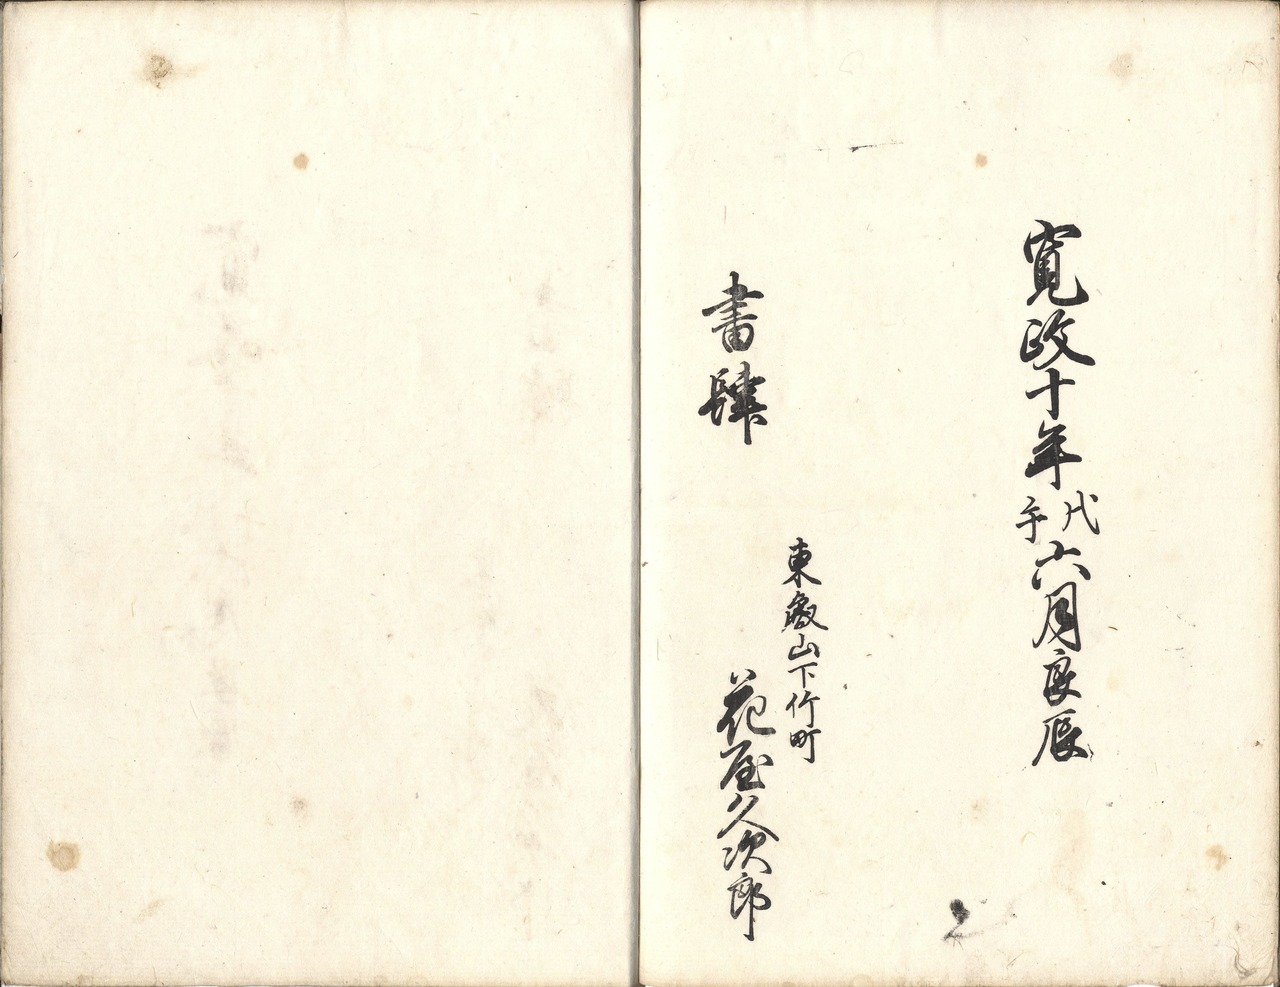 寛政十年戊午六月良辰
書肆
東叡山下竹町
花屋久次郎